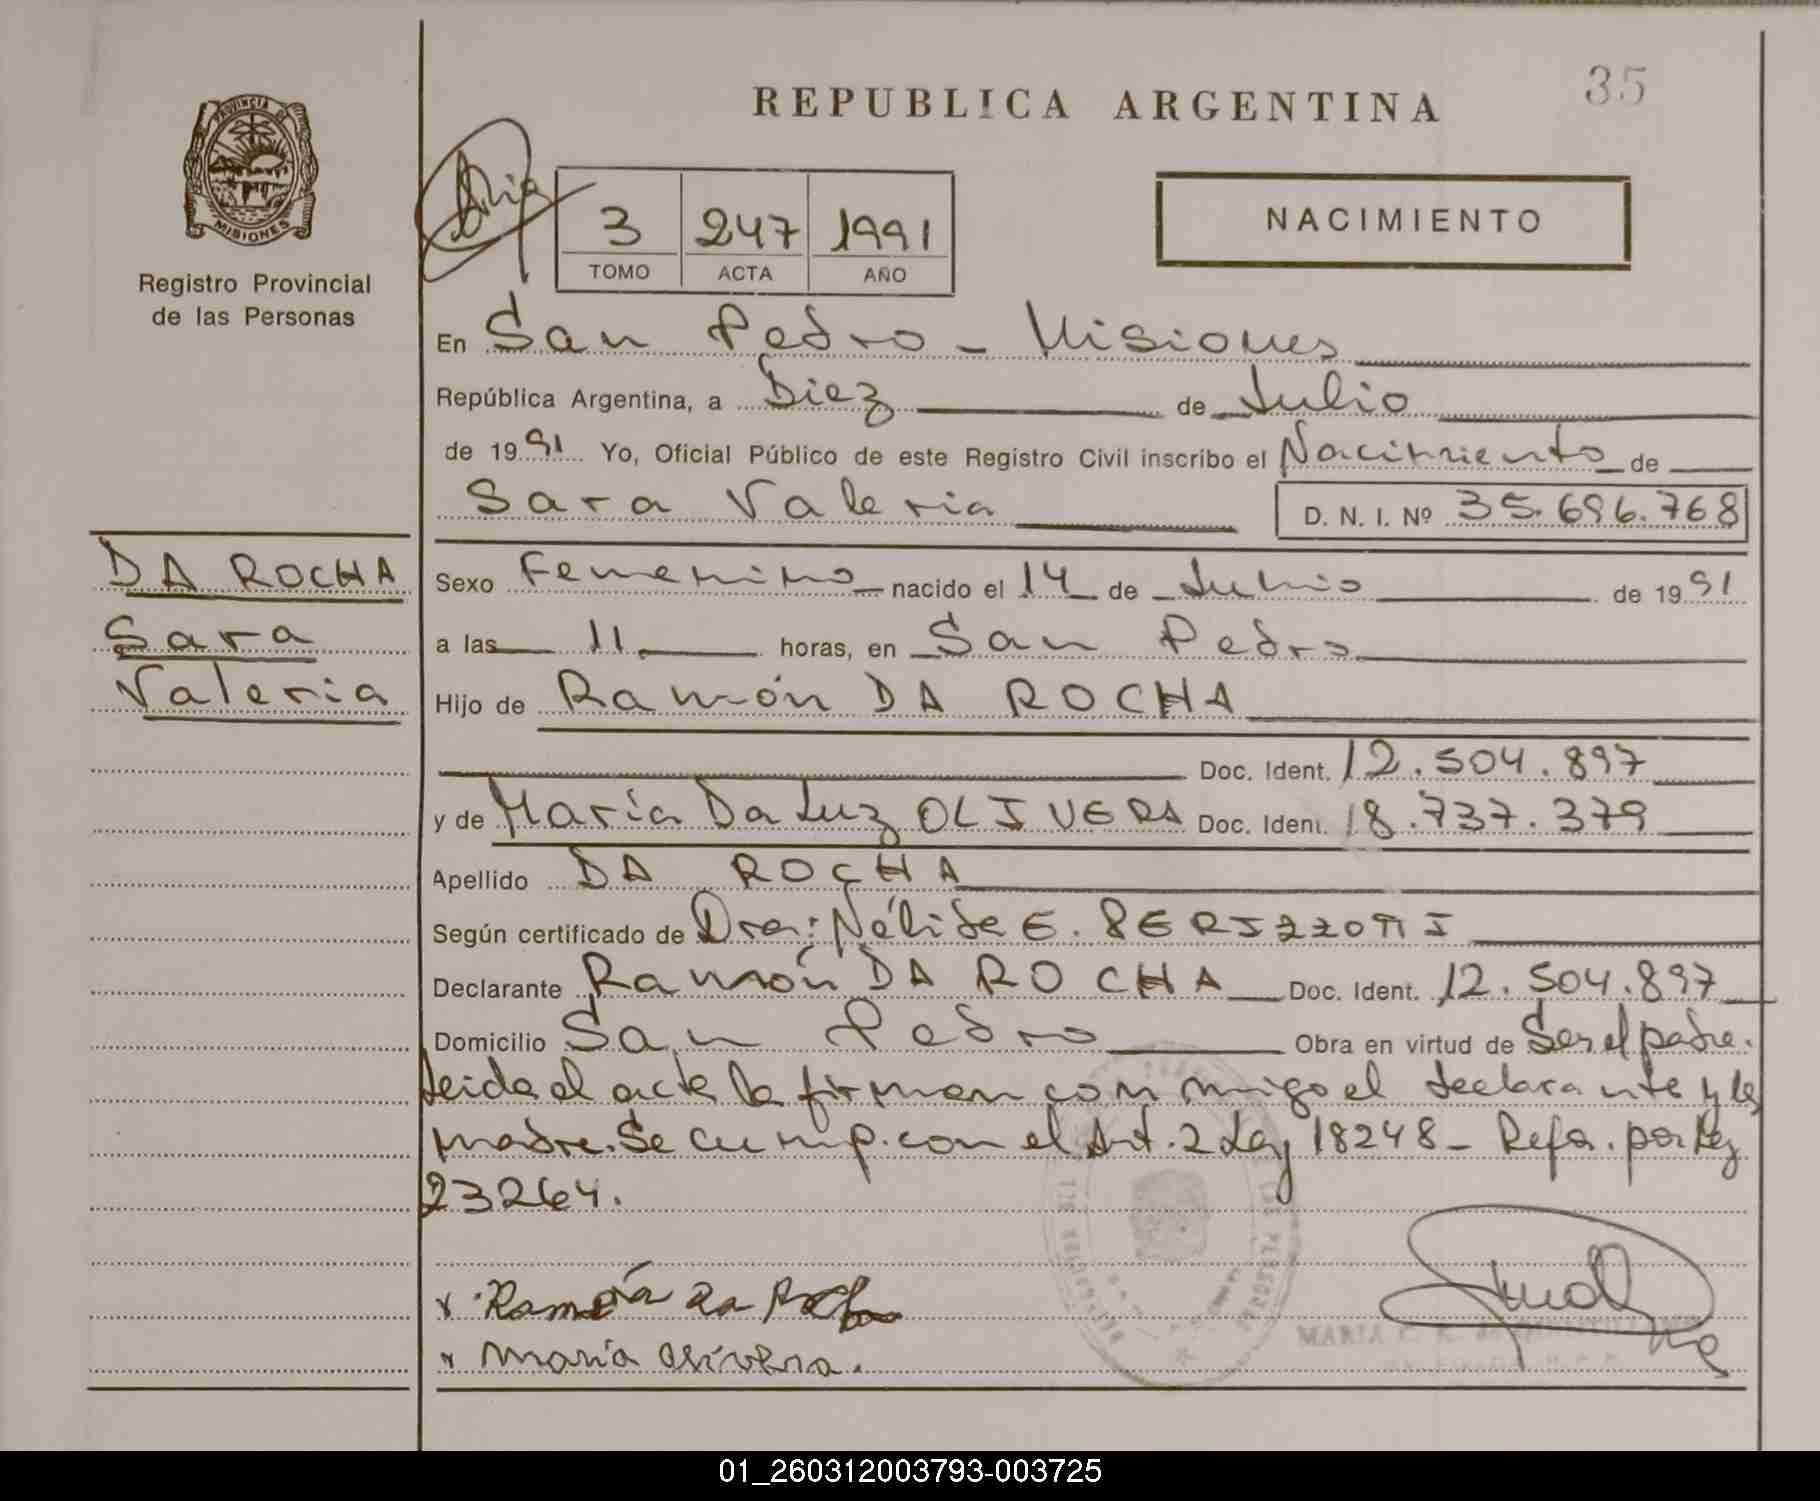 35
REPUBLICA ARGENTINA
PROVINCIA DE
MISIONES
Registro Provincial
de las Personas
3 247 1991
TOMO ACTA AÑO
NACIMIENTO
En San Pedro - Misiones
República Argentina, a Diez de Julio
de 1991 Yo, Oficial Público de este Registro Civil inscribo el Nacimiento de
Sara Valeria D. N. I. Nº 35.696.768
DA ROCHA
Sara
Valeria
Sexo Femenino nacido el 14 de Junio de 1991
a las 11 horas, en San Pedro
Hijo de Ramón DA ROCHA
Doc. Ident. 12.504.897
y de María Da Luz OLIVERA Doc. Ident. 18.737.379
Apellido DA ROCHA
Según certificado de Dra: Nélida E.
Declarante Ramón DA ROCHA Doc. Ident. 12.504.897
Domicilio San Pedro Obra en virtud de Ser el padre.
Leida el acta la firman conmigo el declarante y la
madre. Se cump. con el Art. 2 Ley 18248 - Refor. por Ley
23264.
x Ramón da Rocha
x maría olivera.
01_260312003793-003725